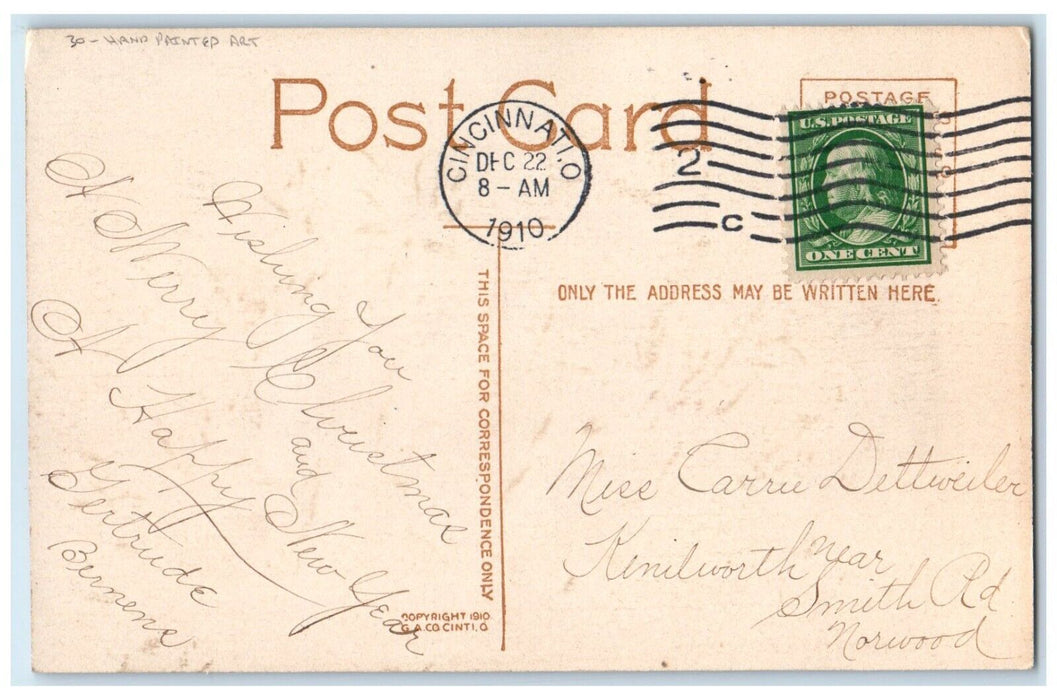 30 - HAND PAINTED ART
Post Card
CINCINNATI.O
DEC 22
8 - AM
1910
2
C
POSTAGE
U.S. POSTAGE
ONE CENT
Wishing You
A Merry Christmas
and
A Happy New Year
Gertrude
THIS SPACE FOR CORRESPONDENCE ONLY
COPYRIGHT 1910
G.A.CO CINTI.O
ONLY THE ADDRESS MAY BE WRITTEN HERE.
Miss Carrie Dettweiler
Kenilworth near
Smith Rd
Norwood